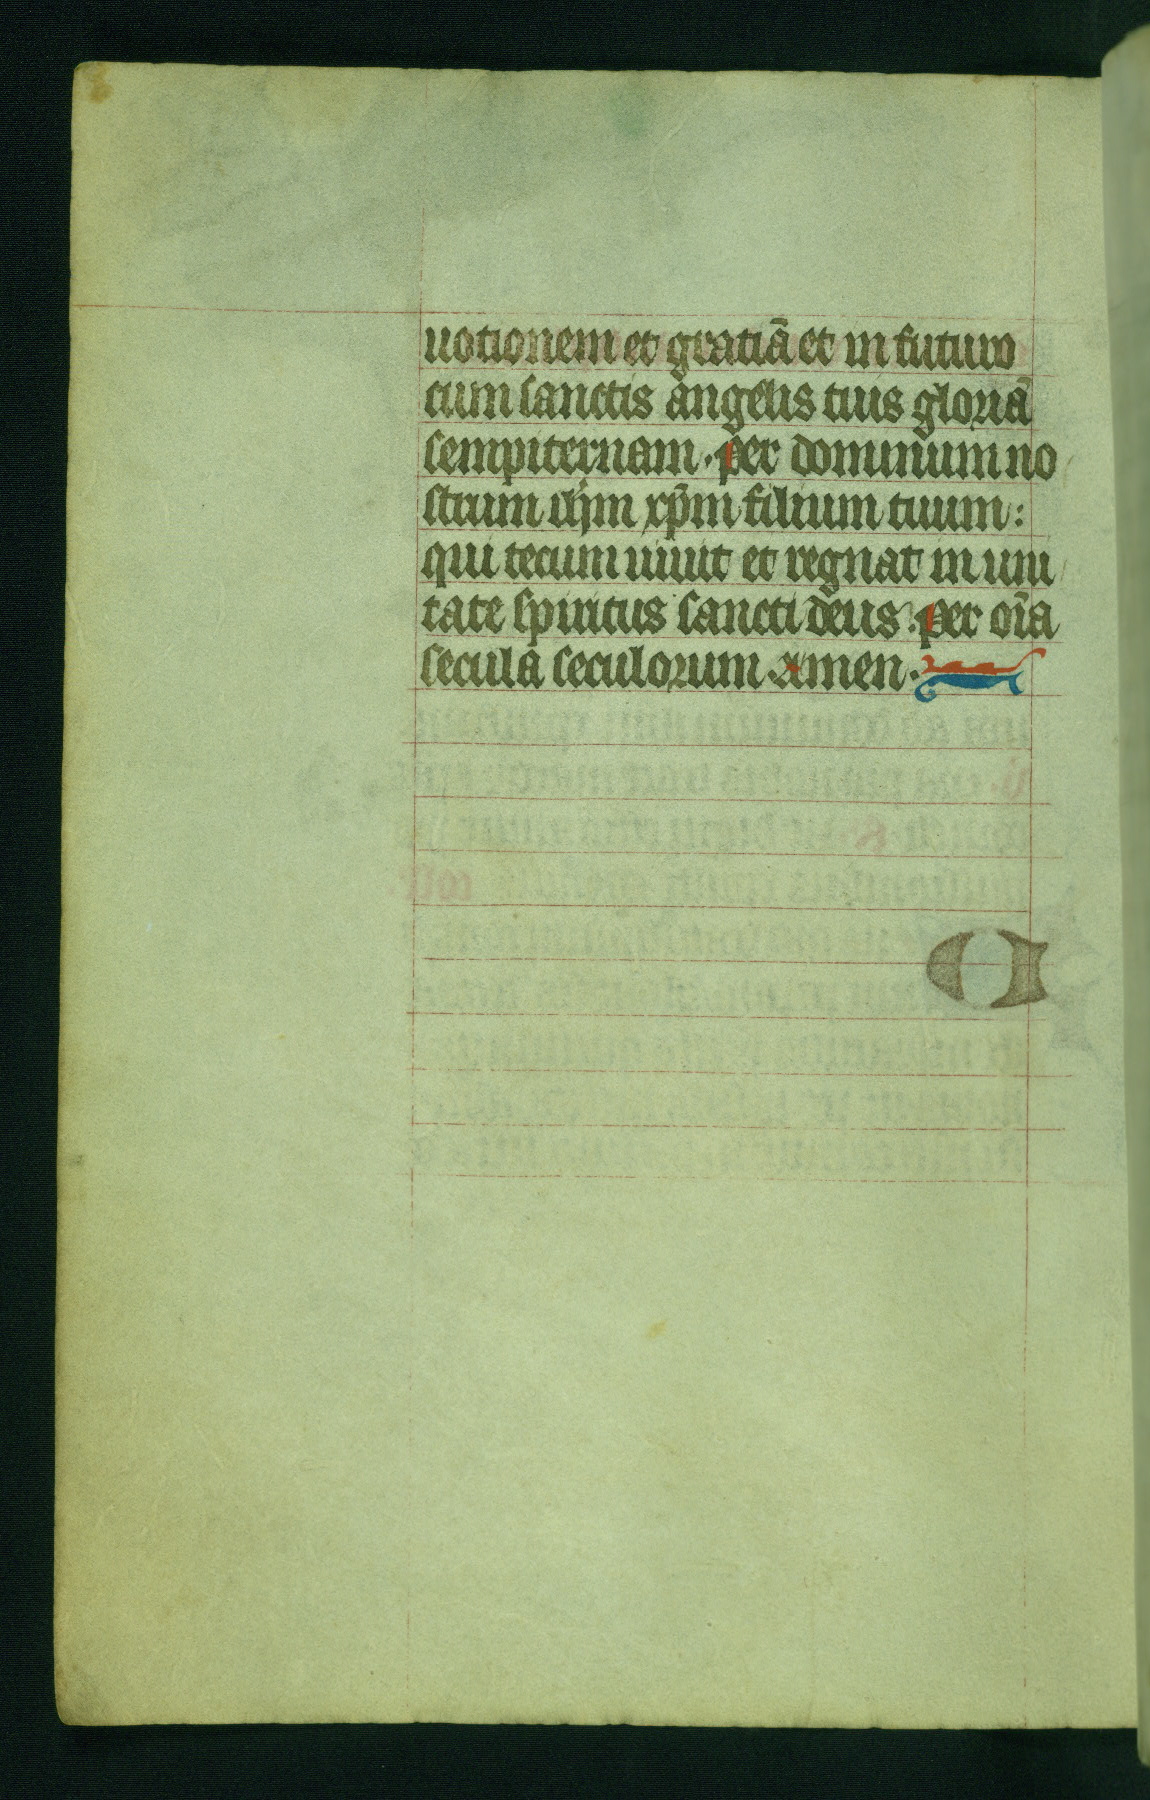 uotionem et gratiā et in futuro
cum sanctis angelis tuis gloriā
sempiternam. per dominum no
strum ihm xp̄m filium tuum:
qui tecum uiuit et regnat in uni
tate spiritus sancti deus. per oīa
secula seculorum. amen.